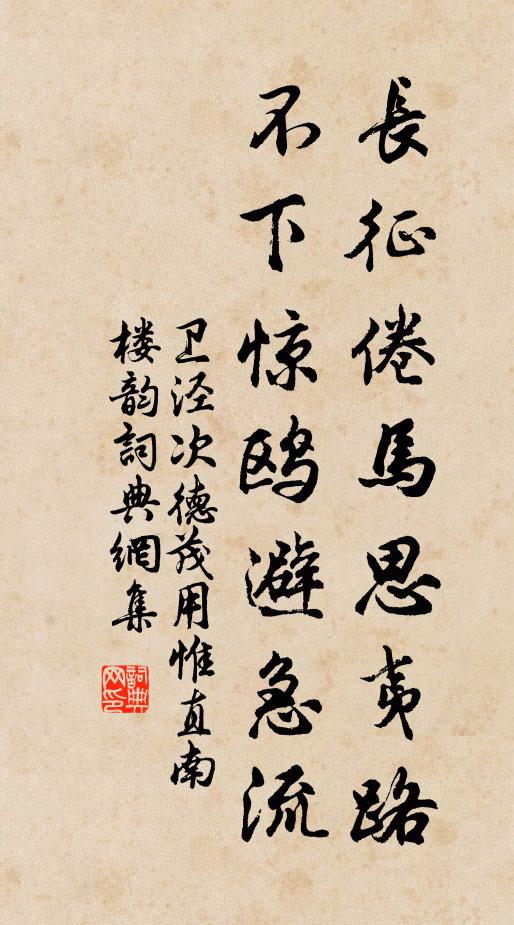 長征倦馬思夷路
不下惊鸥避急流
卫泾次德茂用惟直南
楼韵詞典網集
詞典网印